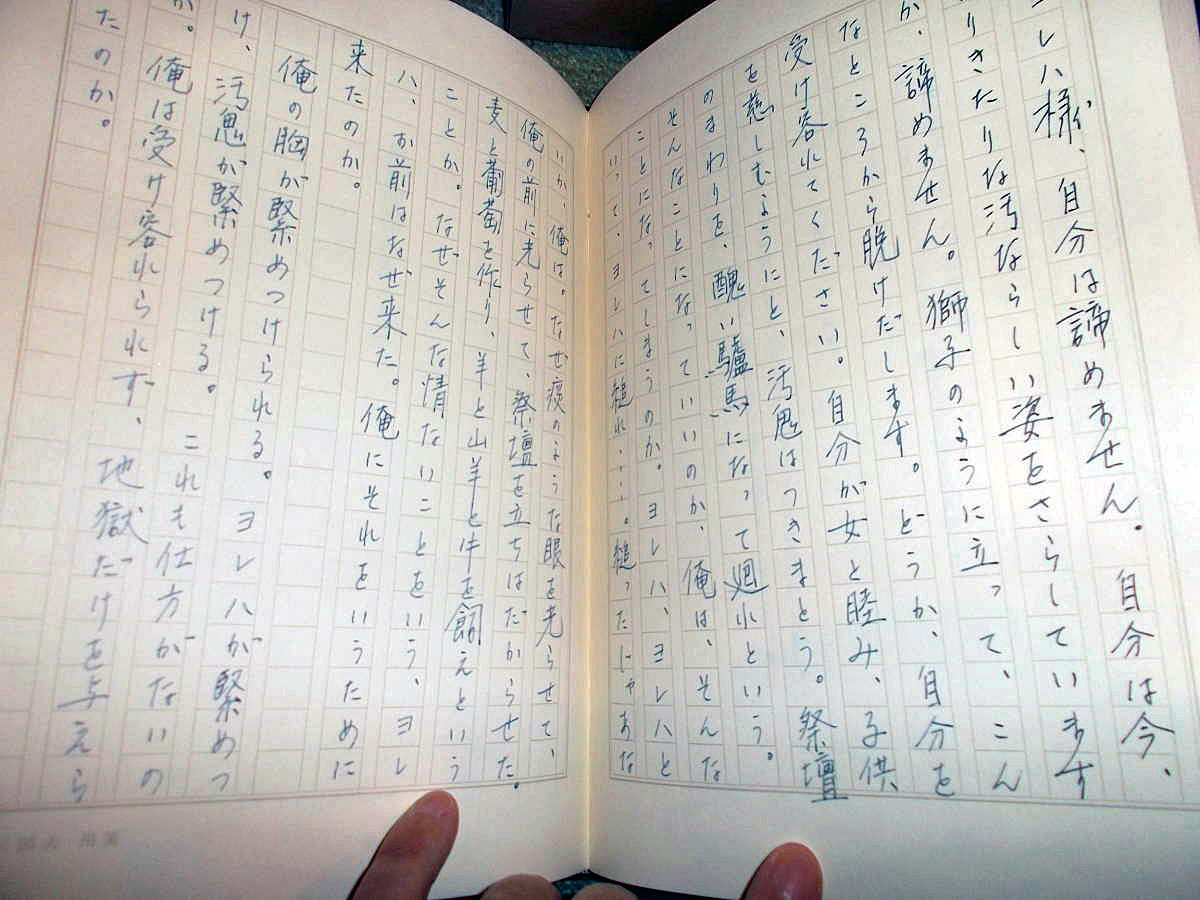 ヨレハ様、自分は諦めません。自分は今、
りきたりな汚ならしい姿をさらしています
が、諦めません。獅子のように立って、こん
なところから脱けだします。どうか、自分を
受け容れてください。自分が女と睦み、子供
を慈しむようにと、汚鬼はつきまとう。祭壇
のまわりを、醜い驢馬になって廻れという。
そんなことになっていいのか、俺は、そんな
ことになってしまうのか。ヨレハ、ヨレハと
いって、ヨレハに縋れ……。縋ったじゃあな
いか、俺は。なぜ疫のような眼を光らせて、
俺の前に光らせて、祭壇を立ちはだからせた。
麦と葡萄を作り、羊と山羊と牛を飼えという
ことか。なぜそんな情ないことをいう、ヨレ
ハ、お前はなぜ来た。俺にそれをいうために
来たのか。
俺の胸が緊めつけられる。ヨレハが緊めつ
け、汚鬼が緊めつける。これも仕方がないの
か。俺は受け容れられず、地獄だけを与えら
たのか。